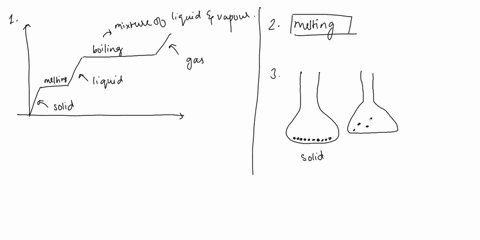 1.
mixture of liquid & vapour.
boiling
gas
melting
liquid
solid
2. melting
3.
solid